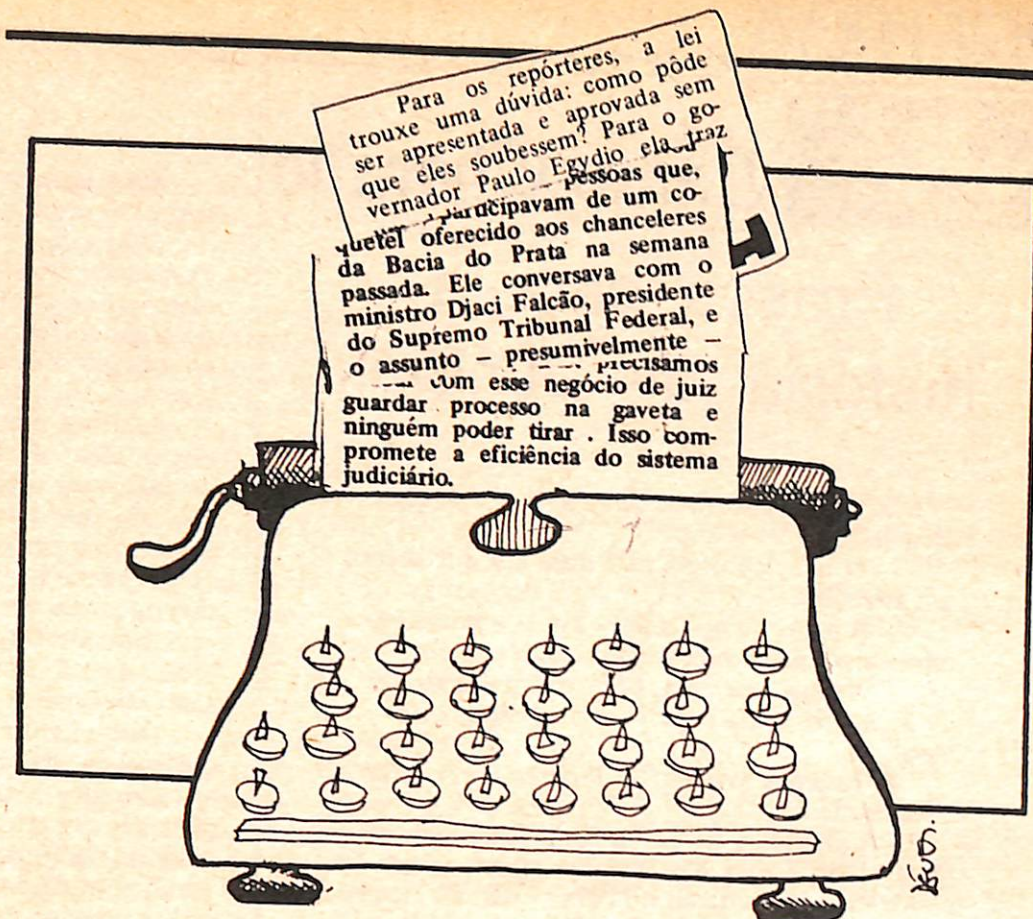 Para os repórteres, a lei
trouxe uma dúvida: como pôde
ser apresentada e aprovada sem
que eles soubessem? Para o go-
vernador Paulo Egydio ela traz
pessoas que,
participavam de um co-
quetel oferecido aos chanceleres
da Bacia do Prata na semana
passada. Ele conversava com o
ministro Djaci Falcão, presidente
do Supremo Tribunal Federal, e
o assunto – presumivelmente –
precisamos
com esse negócio de juiz
guardar processo na gaveta e
ninguém poder tirar . Isso com-
promete a eficiência do sistema
judiciário.